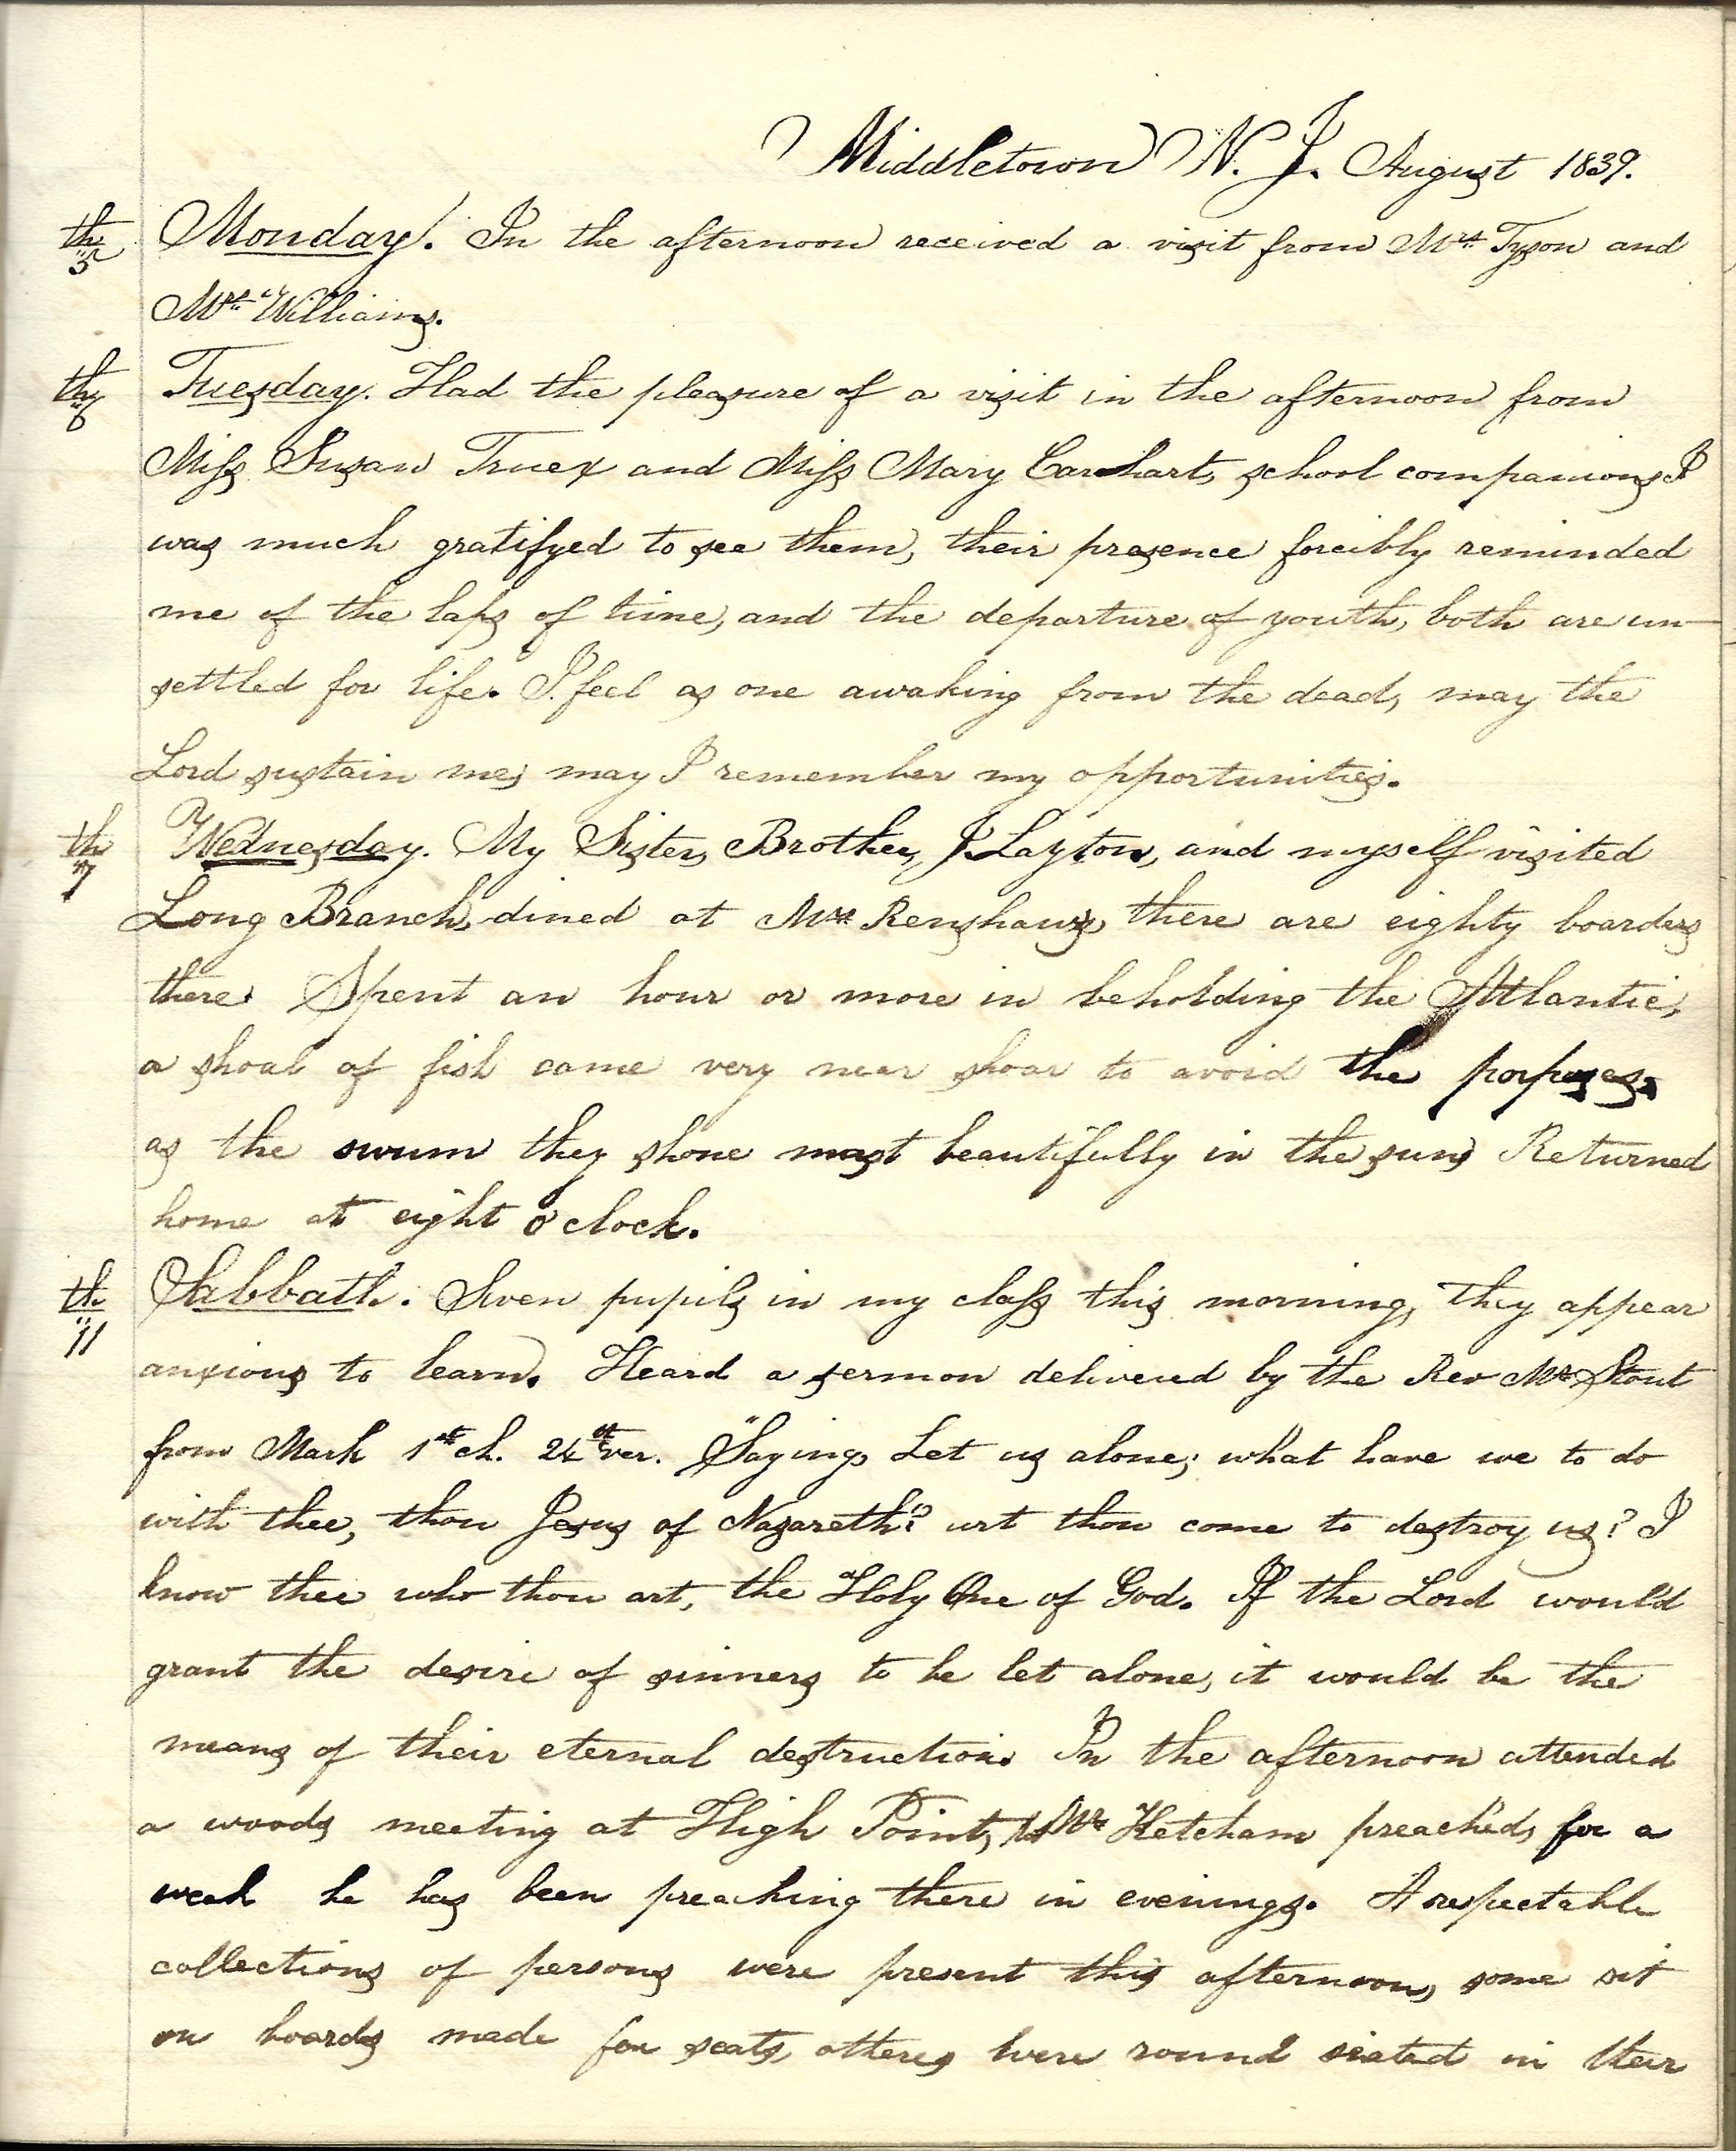 Middletown N. J. August 1839.
5th Monday. In the afternoon received a visit from Mrs Tyson and
Mrs Williams.
6th Tuesday. Had the pleasure of a visit in the afternoon from
Miss Susan Truex and Miss Mary Carhart, school companions I
was much gratifyed to see them, their presence forcibly reminded
me of the laps of time, and the departure of youth, both are un-
settled for life. I feel as one awaking from the dead, may the
Lord sustain me, may I remember my opportunities.
7th Wednesday. My Sister, Brother, J. Layton, and myself visited
Long Branch, dined at Mrs Renshaws, there are eighty boarders
there. Spent an hour or more in beholding the Atlantic,
a shoal of fish came very near shoar to avoid the porpeses,
as the swum they shone most beautifully in the sun, Returned
home at eight o'clock.
11th Sabbath. Seven pupils in my class this morning, they appear
anxious to learn. Heard a sermon delivered by the Rev Mr Stout
from Mark 1st ch. 24th ver. "Saying, Let us alone; what have we to do
with thee, thou Jesus of Nazareth? art thou come to destroy us? I
know thee who thou art, the Holy One of God. If the Lord would
grant the desire of sinners to be let alone, it would be the
means of their eternal destruction. In the afternoon attended
a woods meeting at High Point, Mr Ketcham preached, for a
week he has been preaching there in evenings. A respectable
collections of persons were present this afternoon, some sit
on boards made for seats, otheres were round seated in their